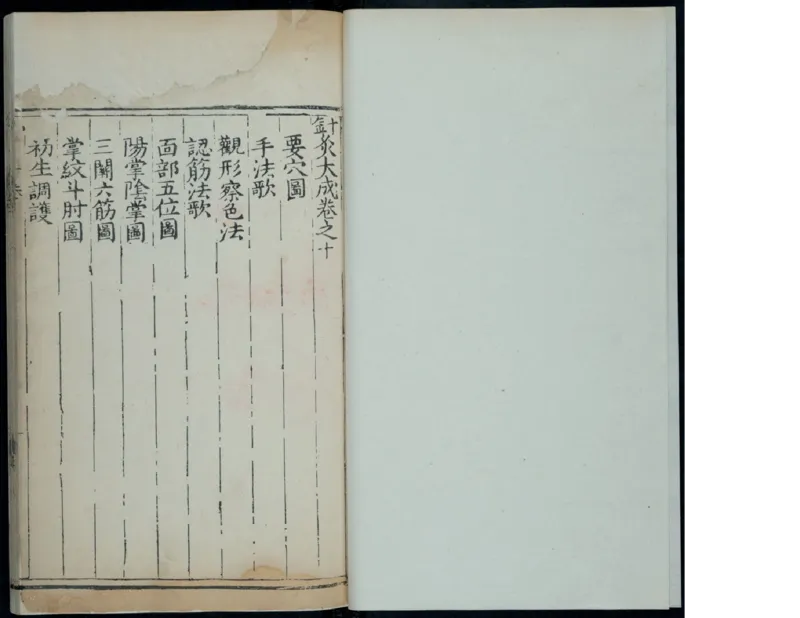 鍼灸大成卷之十
要穴圖
手法歌
觀形察色法
認筋法歌
面部五位圖
陽掌陰掌圖
三關六筋圖
掌紋斗肘圖
初生調護